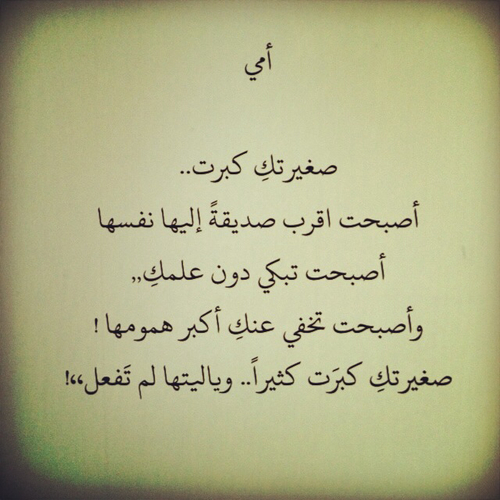 أمي
صغيرتكِ كبرت..
أصبحت اقرب صديقةً إليها نفسها
أصبحت تبكي دون علمكِ,,
وأصبحت تخفي عنكِ أكبر همومها !
صغيرتكِ كبرَت كثيراً.. وياليتها لم تَفعل،،!